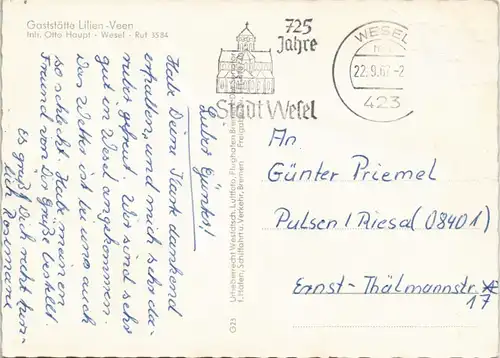 Gaststätte Lilien-Veen
Inh. Otto Haupt - Wesel - Ruf 3584
Lieber Günter!
Habe Deine Karte dankend
erhalten, und mich sehr da-
rüber gefreut. Wir sind sehr
gut in Wesel angekommen.
Das Wetter ist bei uns auch
so schlecht. Habe meinen
Freund von Dir Grüße bestellt.
Es grüßt Dich recht herz-
lich Rosemarie
G23
Urheberrecht Westdtsch. Luftfoto, Flughafen Bremen
f. Häfen, Schiffahrt u. Verkehr, Bremen Freigabe
725
Jahre
Stadt Wesel
WESEL
22.9.67-2
423
An
Günter Priemel
Pulsen / Riesa (08401)
Ernst-Thälmannstr.
17